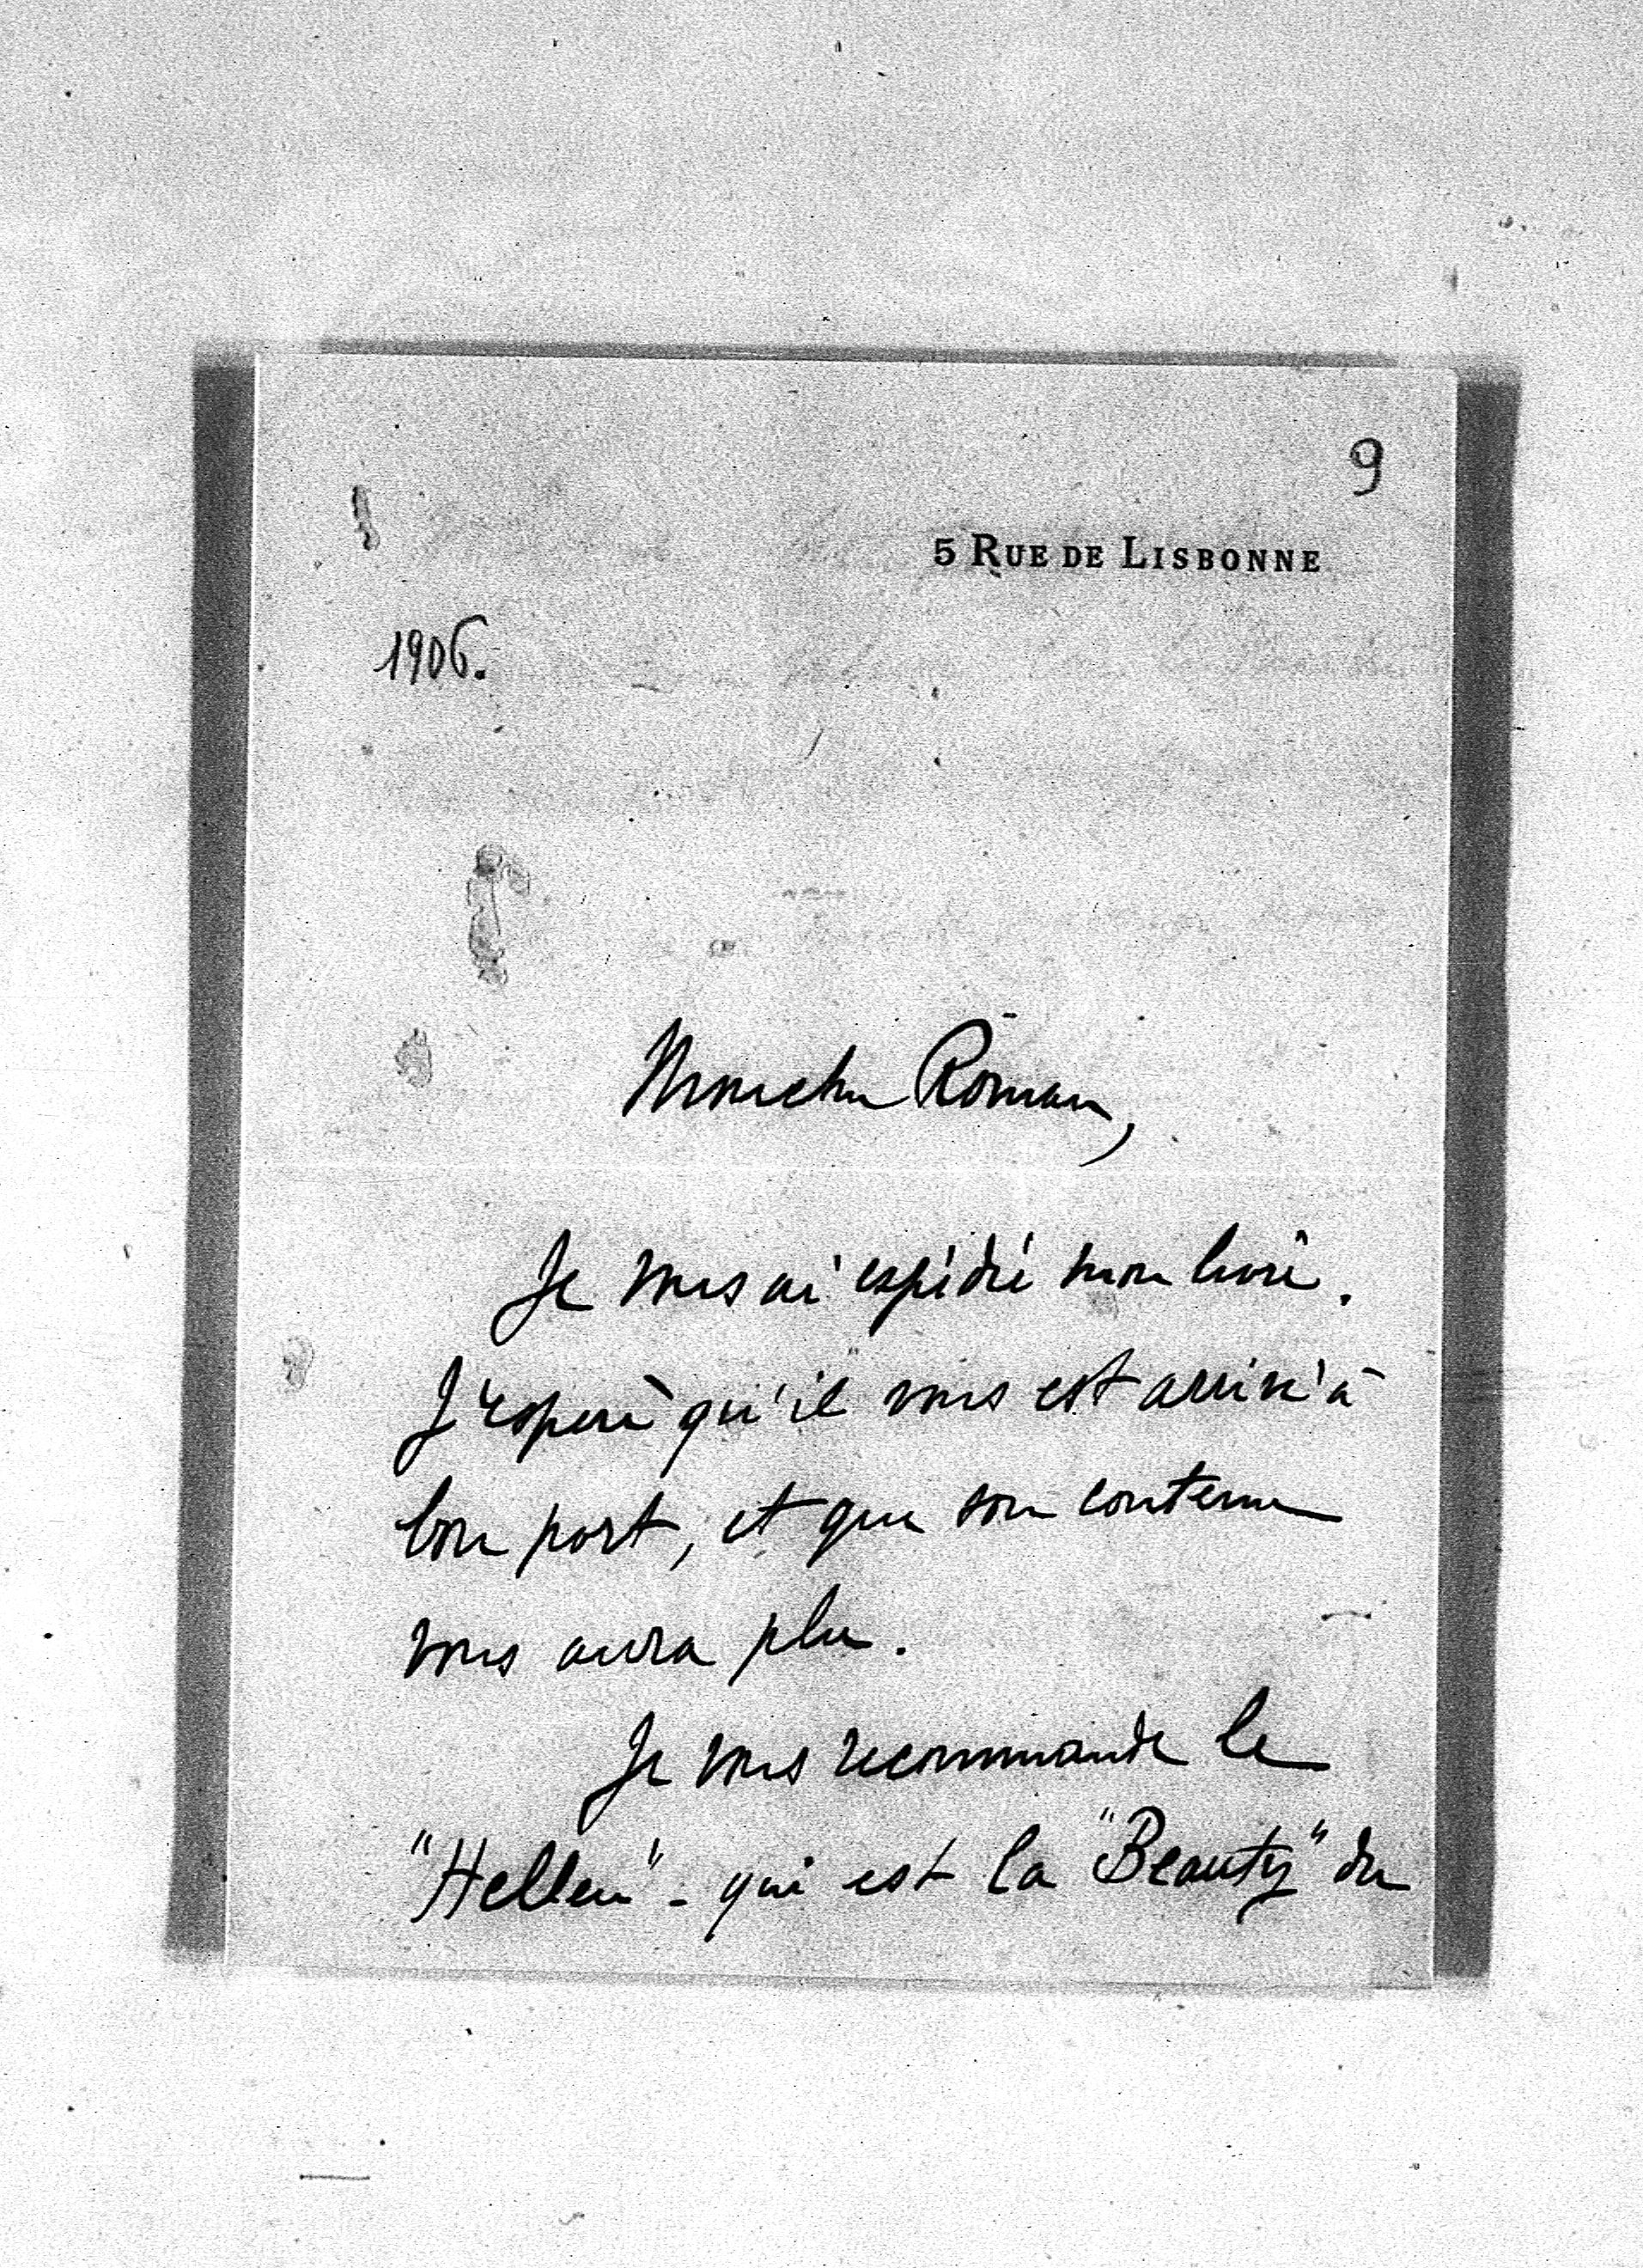 9
5 RUE DE LISBONNE
1906.
Mon cher Roman,
Je vous ai expédié mon livre.
J'espère qu'il vous est arrivé à
bon port, et que son contenu
vous aura plu.
Je vous recommande le
"Helleu" - qui est la "Beauty" du